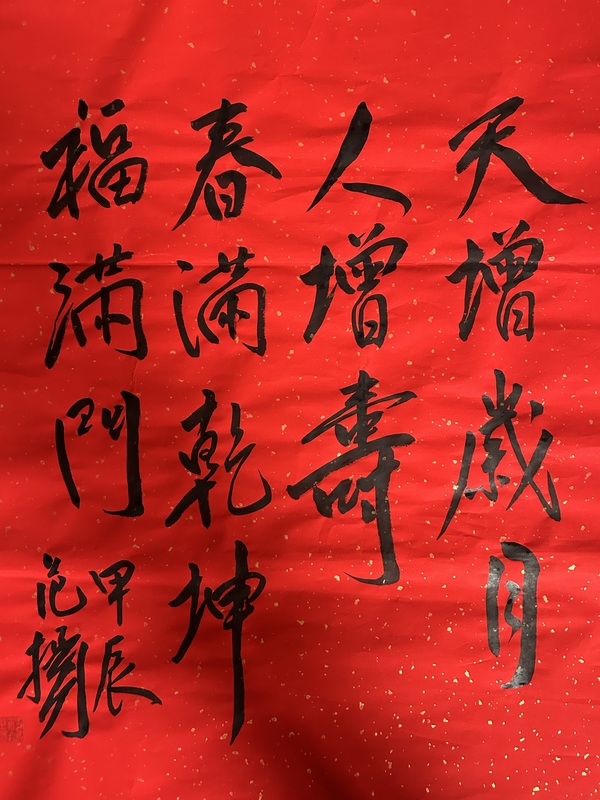 天增歲月
人增壽
春滿乾坤
福滿門
甲辰
范